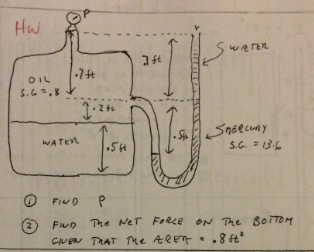 HW
P
OIL
S.G = .8
.7 ft
.7 ft
WATER
.2 ft
WATER
.5 ft
.5 ft
MERCURY
S.G = 13.6
① FIND P
② FIND THE NET FORCE ON THE BOTTOM
GIVEN THAT THE AREA = .8 ft²